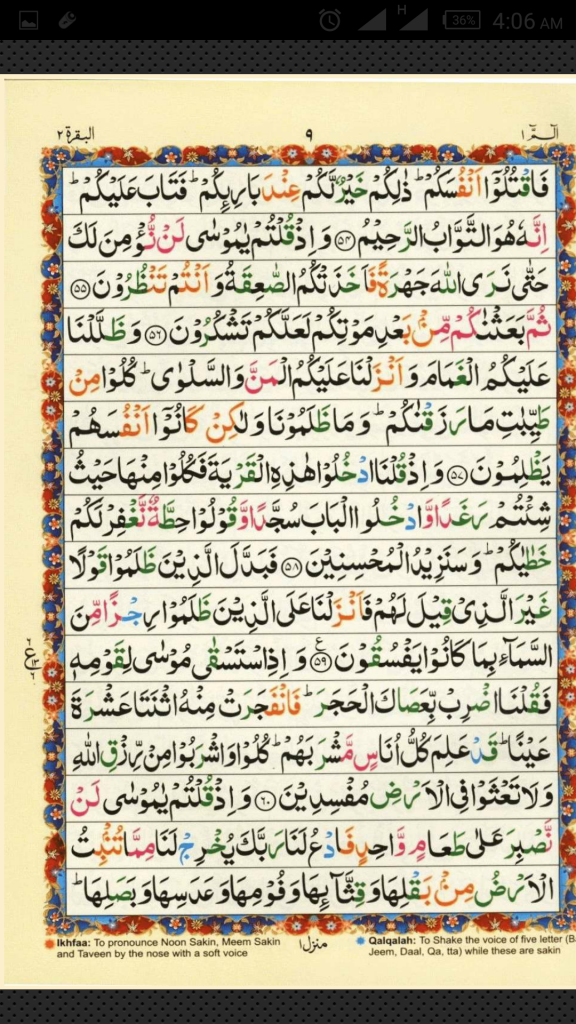 H 36% 4:06 AM
الٓمّٓ ١ ٩ البقرة ٢
فَاقْتُلُوْۤا اَنْفُسَكُمْ ؕ ذٰلِكُمْ خَيْرٌ لَّكُمْ عِنْدَ بَارِىِٕكُمْ ؕ فَتَابَ عَلَيْكُمْ ؕ
اِنَّهٗ هُوَ التَّوَّابُ الرَّحِيْمُ ﴿۵۴﴾ وَ اِذْ قُلْتُمْ يٰمُوْسٰى لَنْ نُّؤْمِنَ لَكَ
حَتّٰى نَرَى اللّٰهَ جَهْرَةً فَاَخَذَتْكُمُ الصّٰعِقَةُ وَ اَنْتُمْ تَنْظُرُوْنَ ﴿۵۵﴾
ثُمَّ بَعَثْنٰكُمْ مِّنْۢ بَعْدِ مَوْتِكُمْ لَعَلَّكُمْ تَشْكُرُوْنَ ﴿۵۶﴾ وَ ظَلَّلْنَا
عَلَيْكُمُ الْغَمَامَ وَ اَنْزَلْنَا عَلَيْكُمُ الْمَنَّ وَ السَّلْوٰى ؕ كُلُوْا مِنْ
طَيِّبٰتِ مَا رَزَقْنٰكُمْ ؕ وَ مَا ظَلَمُوْنَا وَ لٰكِنْ كَانُوْۤا اَنْفُسَهُمْ
يَظْلِمُوْنَ ﴿۵۷﴾ وَ اِذْ قُلْنَا ادْخُلُوْا هٰذِهِ الْقَرْيَةَ فَكُلُوْا مِنْهَا حَيْثُ
شِئْتُمْ رَغَدًا وَّ ادْخُلُوا الْبَابَ سُجَّدًا وَّ قُوْلُوْا حِطَّةٌ نَّغْفِرْ لَكُمْ
خَطٰيٰكُمْ ؕ وَ سَنَزِيْدُ الْمُحْسِنِيْنَ ﴿۵۸﴾ فَبَدَّلَ الَّذِيْنَ ظَلَمُوْا قَوْلًا
غَيْرَ الَّذِىْ قِيْلَ لَهُمْ فَاَنْزَلْنَا عَلَى الَّذِيْنَ ظَلَمُوْا رِجْزًا مِّنَ
السَّمَآءِ بِمَا كَانُوْا يَفْسُقُوْنَ ﴿۵۹﴾ ع وَ اِذِ اسْتَسْقٰى مُوْسٰى لِقَوْمِهٖ
فَقُلْنَا اضْرِبْ بِّعَصَاكَ الْحَجَرَ ؕ فَانْفَجَرَتْ مِنْهُ اثْنَتَا عَشْرَةَ
عَيْنًا ؕ قَدْ عَلِمَ كُلُّ اُنَاسٍ مَّشْرَبَهُمْ ؕ كُلُوْا وَ اشْرَبُوْا مِنْ رِّزْقِ اللّٰهِ
وَ لَا تَعْثَوْا فِى الْاَرْضِ مُفْسِدِيْنَ ﴿۶۰﴾ وَ اِذْ قُلْتُمْ يٰمُوْسٰى لَنْ
نَّصْبِرَ عَلٰى طَعَامٍ وَّاحِدٍ فَادْعُ لَنَا رَبَّكَ يُخْرِجْ لَنَا مِمَّا تُنْۢبِتُ
الْاَرْضُ مِنْۢ بَقْلِهَا وَ قِثَّآىِٕهَا وَ فُوْمِهَا وَ عَدَسِهَا وَ بَصَلِهَا ؕ
Ikhfaa: To pronounce Noon Sakin, Meem Sakin
and Taveen by the nose with a soft voice
منزل ١
Qalqalah: To Shake the voice of five letter (B
Jeem, Daal, Qa, tta) while these are sakin